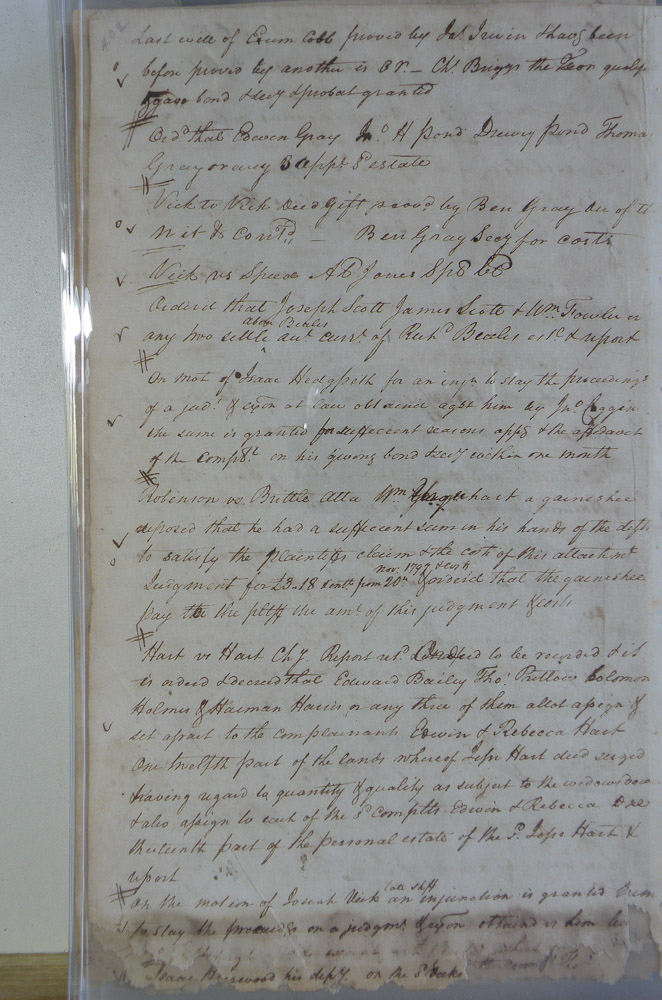 Last will of Exum Cobb proved by Jas Irwin & havg been
before proved by another is OR. — Chs. Briggs the Exor qualif
& gave bond & secy & probat granted
Ord. that Edwin Gray Jno. H Pond Drewry Pond Thoma
Gray or any 3 appr. sd estate
Vick to Vick Deed Gift provd by Ben Gray one of th
wit & contd. — Ben Gray Secy for costs
Vick vs Speed AB Jones Spl bl
Orderd that Joseph Scott James Scott & Wm. Fowler or
above Beales
any two settle acct. curr. of Richd Beales estc & report
On mot of Isaac Hedgpeth for an injn to stay the proceedings
of a judt. & exon at law obtaind agst him by Jno.
the same is granted for sufficient reasons appg & the affidavit
of the complt. on his giving bond & secy within one month
Robinson vs. Brittle Atta Wm Urquhart a garnishee
deposed that he had a sufficient sum in his hands of the defts
to satisfy the plaintiffs claim & the costs of this attachmt
Nov. 1799 & costs
Judgment for £3.18 & intt from 20th & orderd that the garnishee
pay to the pltff the amt of this judgment & costs
Hart vs Hart Chy. Report retd. Orderd to be recorded & it
is orderd & decreed that Edward Bailey Thos. Pretlow Solomon
Holmes & Harman Harris or any three of them allot assign &
set apart to the complainants Edwin & Rebecca Hart
One twelfth part of the lands whereof Jesse Hart died seized
having regard to quantity & quality as subject to the widows dow
& also assign to each of the sd Complts Edwin & Rebecca One
thirteenth part of the personal estate of the sd. Jesse Hart &
report
On the motion of Josiah Vick late Shff an injunction is granted
to stay the proceedgs on a judgmt & exon obtaind vs him by
Isaac his depy. on the sd